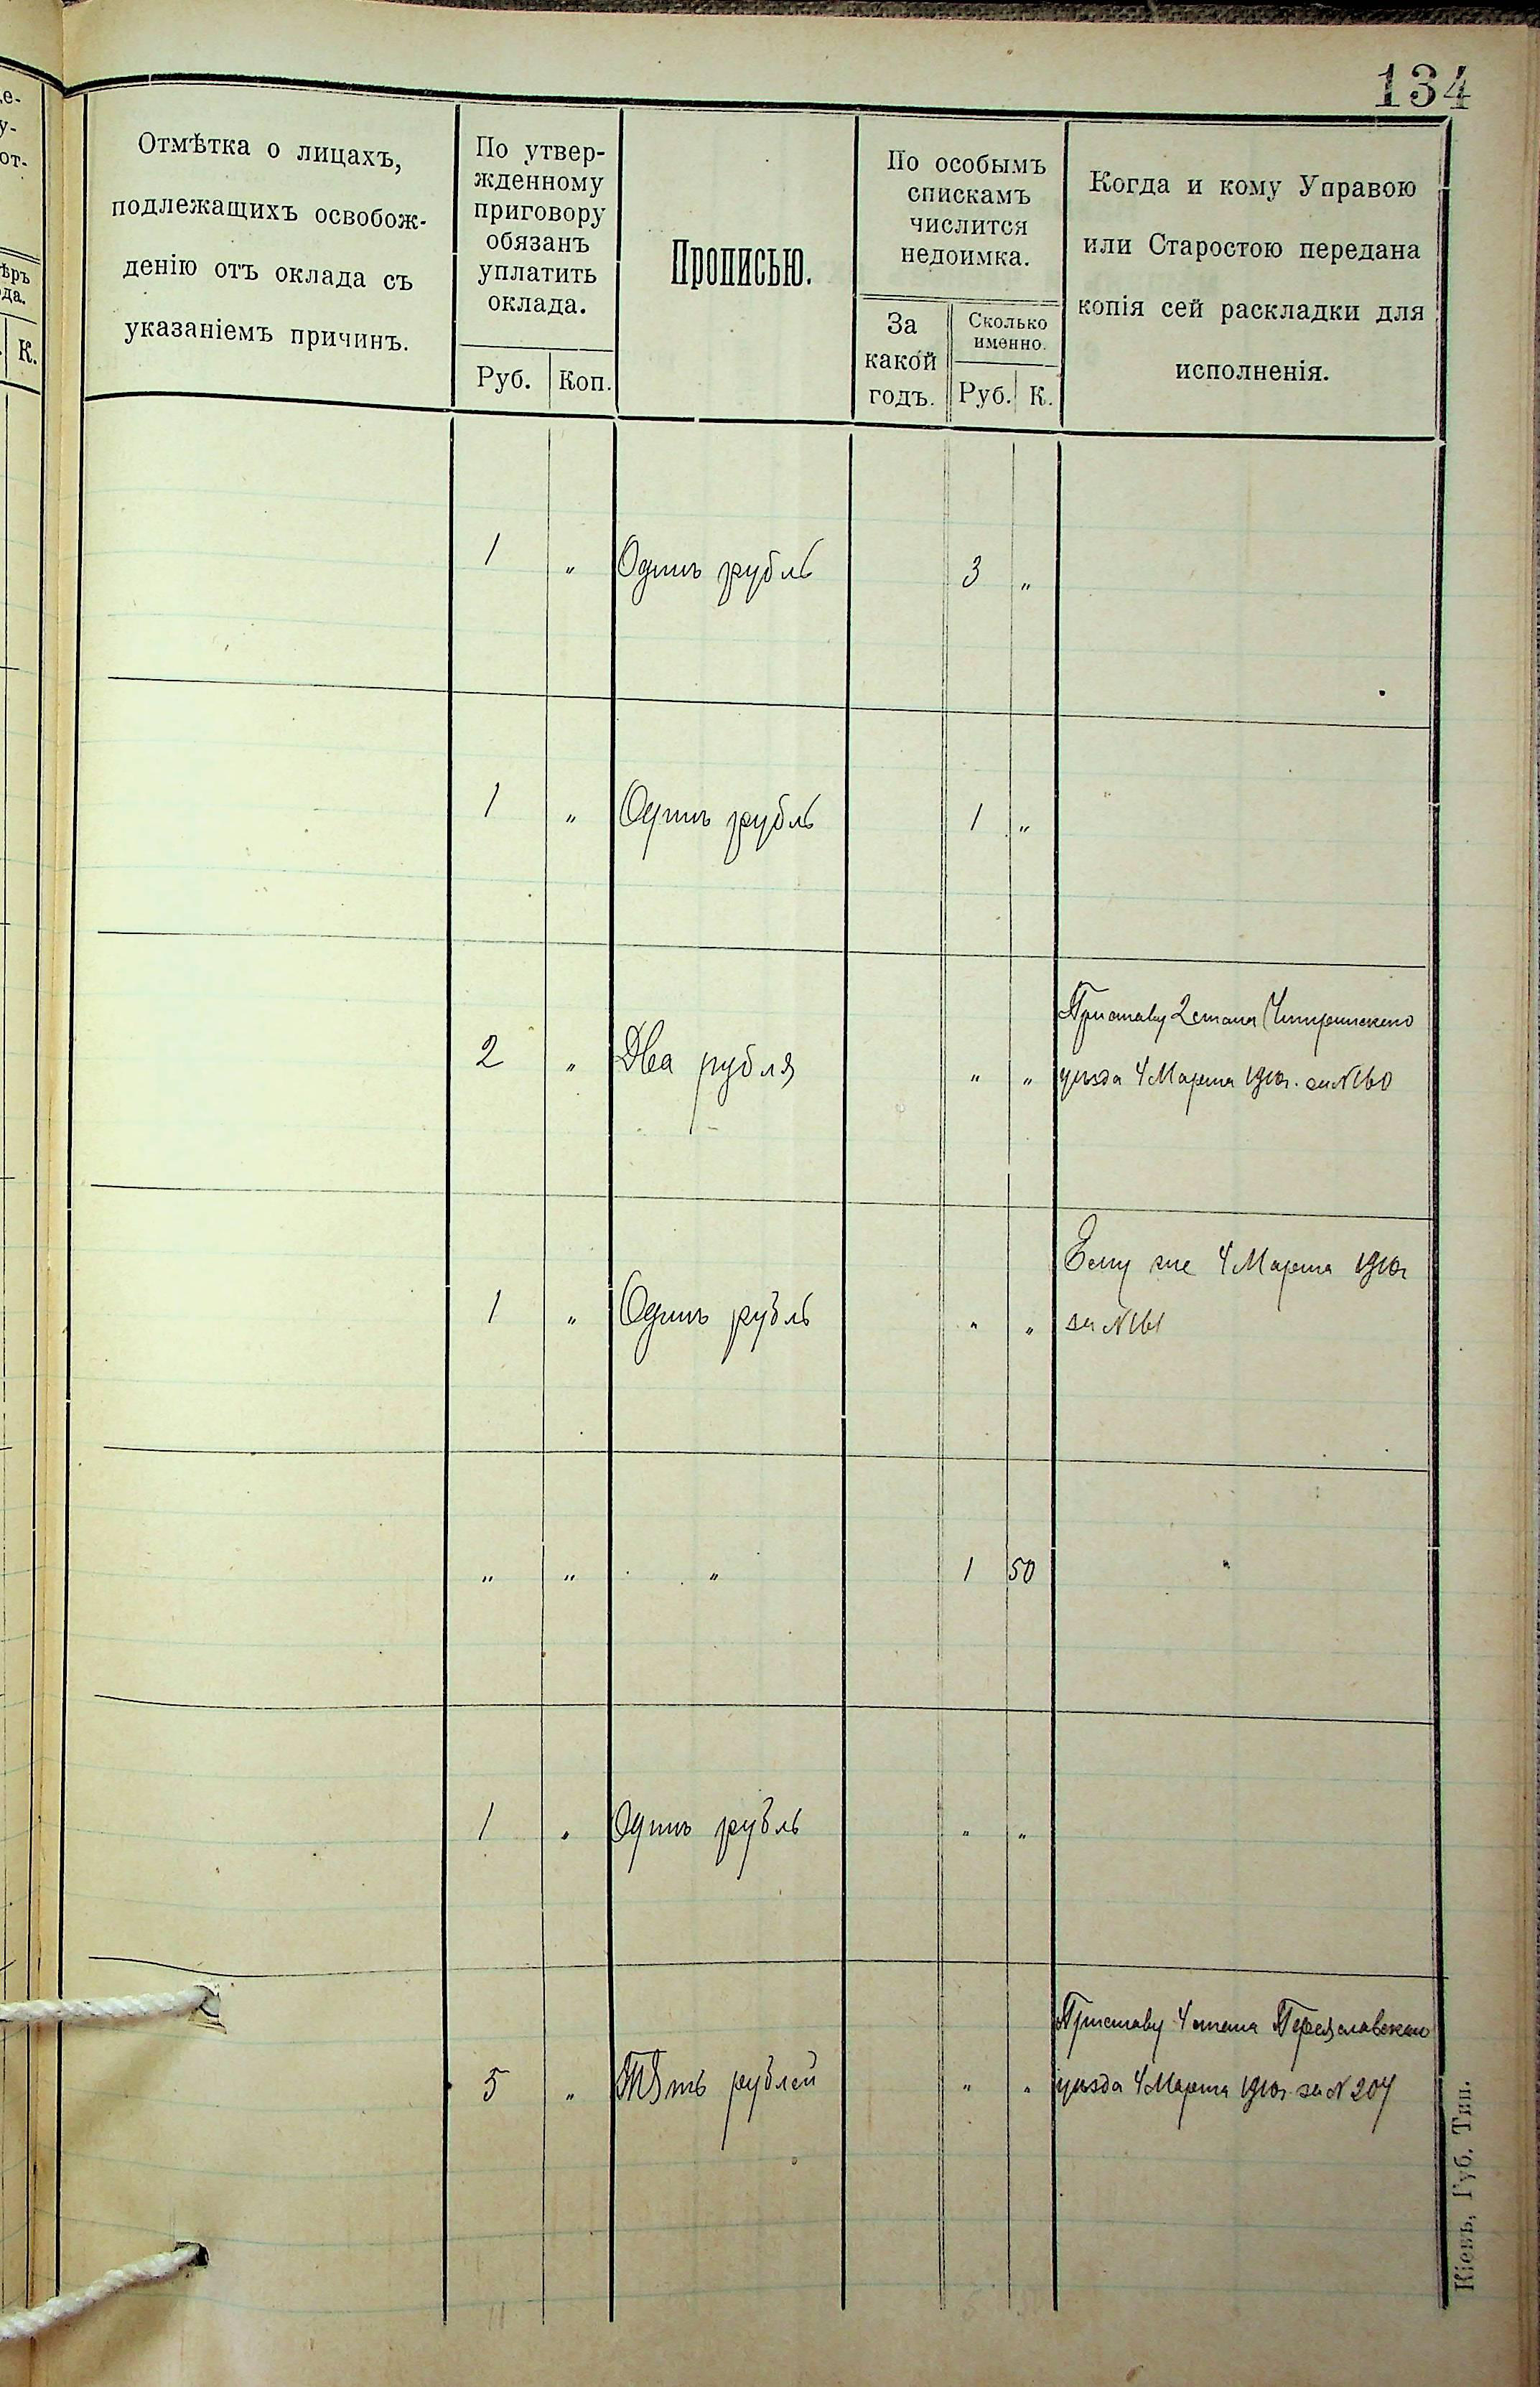 134
е-
у-
от-
ѣръ
да.
К.
Отмѣтка о лицахъ,
подлежащихъ освобож-
денію отъ оклада съ
указаніемъ причинъ.
По утвер-
жденному
приговору
обязанъ
уплатить
оклада.
Руб. Коп.
Прописью.
По особымъ
спискамъ
числится
недоимка.
За
какой
годъ.
Сколько
именно.
Руб. К.
Когда и кому Управою
или Старостою передана
копія сей раскладки для
исполненія.
1 „ Одинъ рубль 3 „
1 „ Одинъ рубль 1 „
Приставу 2 стана Чигиринскаго
2 „ Два рубля „ „ уѣзда 4 Марта 1910г. за N 160
Тому же 4 Марта 1910г
1 „ Одинъ рубль „ „ за N 161
„ „ „ 1 50 „
1 „ Одинъ рубль „ „
Приставу 4 стана Переяславскаго
5 „ Пять рублей „ „ уѣзда 4 Марта 1910г. за N 207
Кіевъ, Губ. Тип.